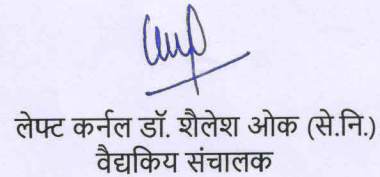 लेफ्ट कर्नल डॉ. शैलेश ओक (से.नि.)
वैद्यकिय संचालक